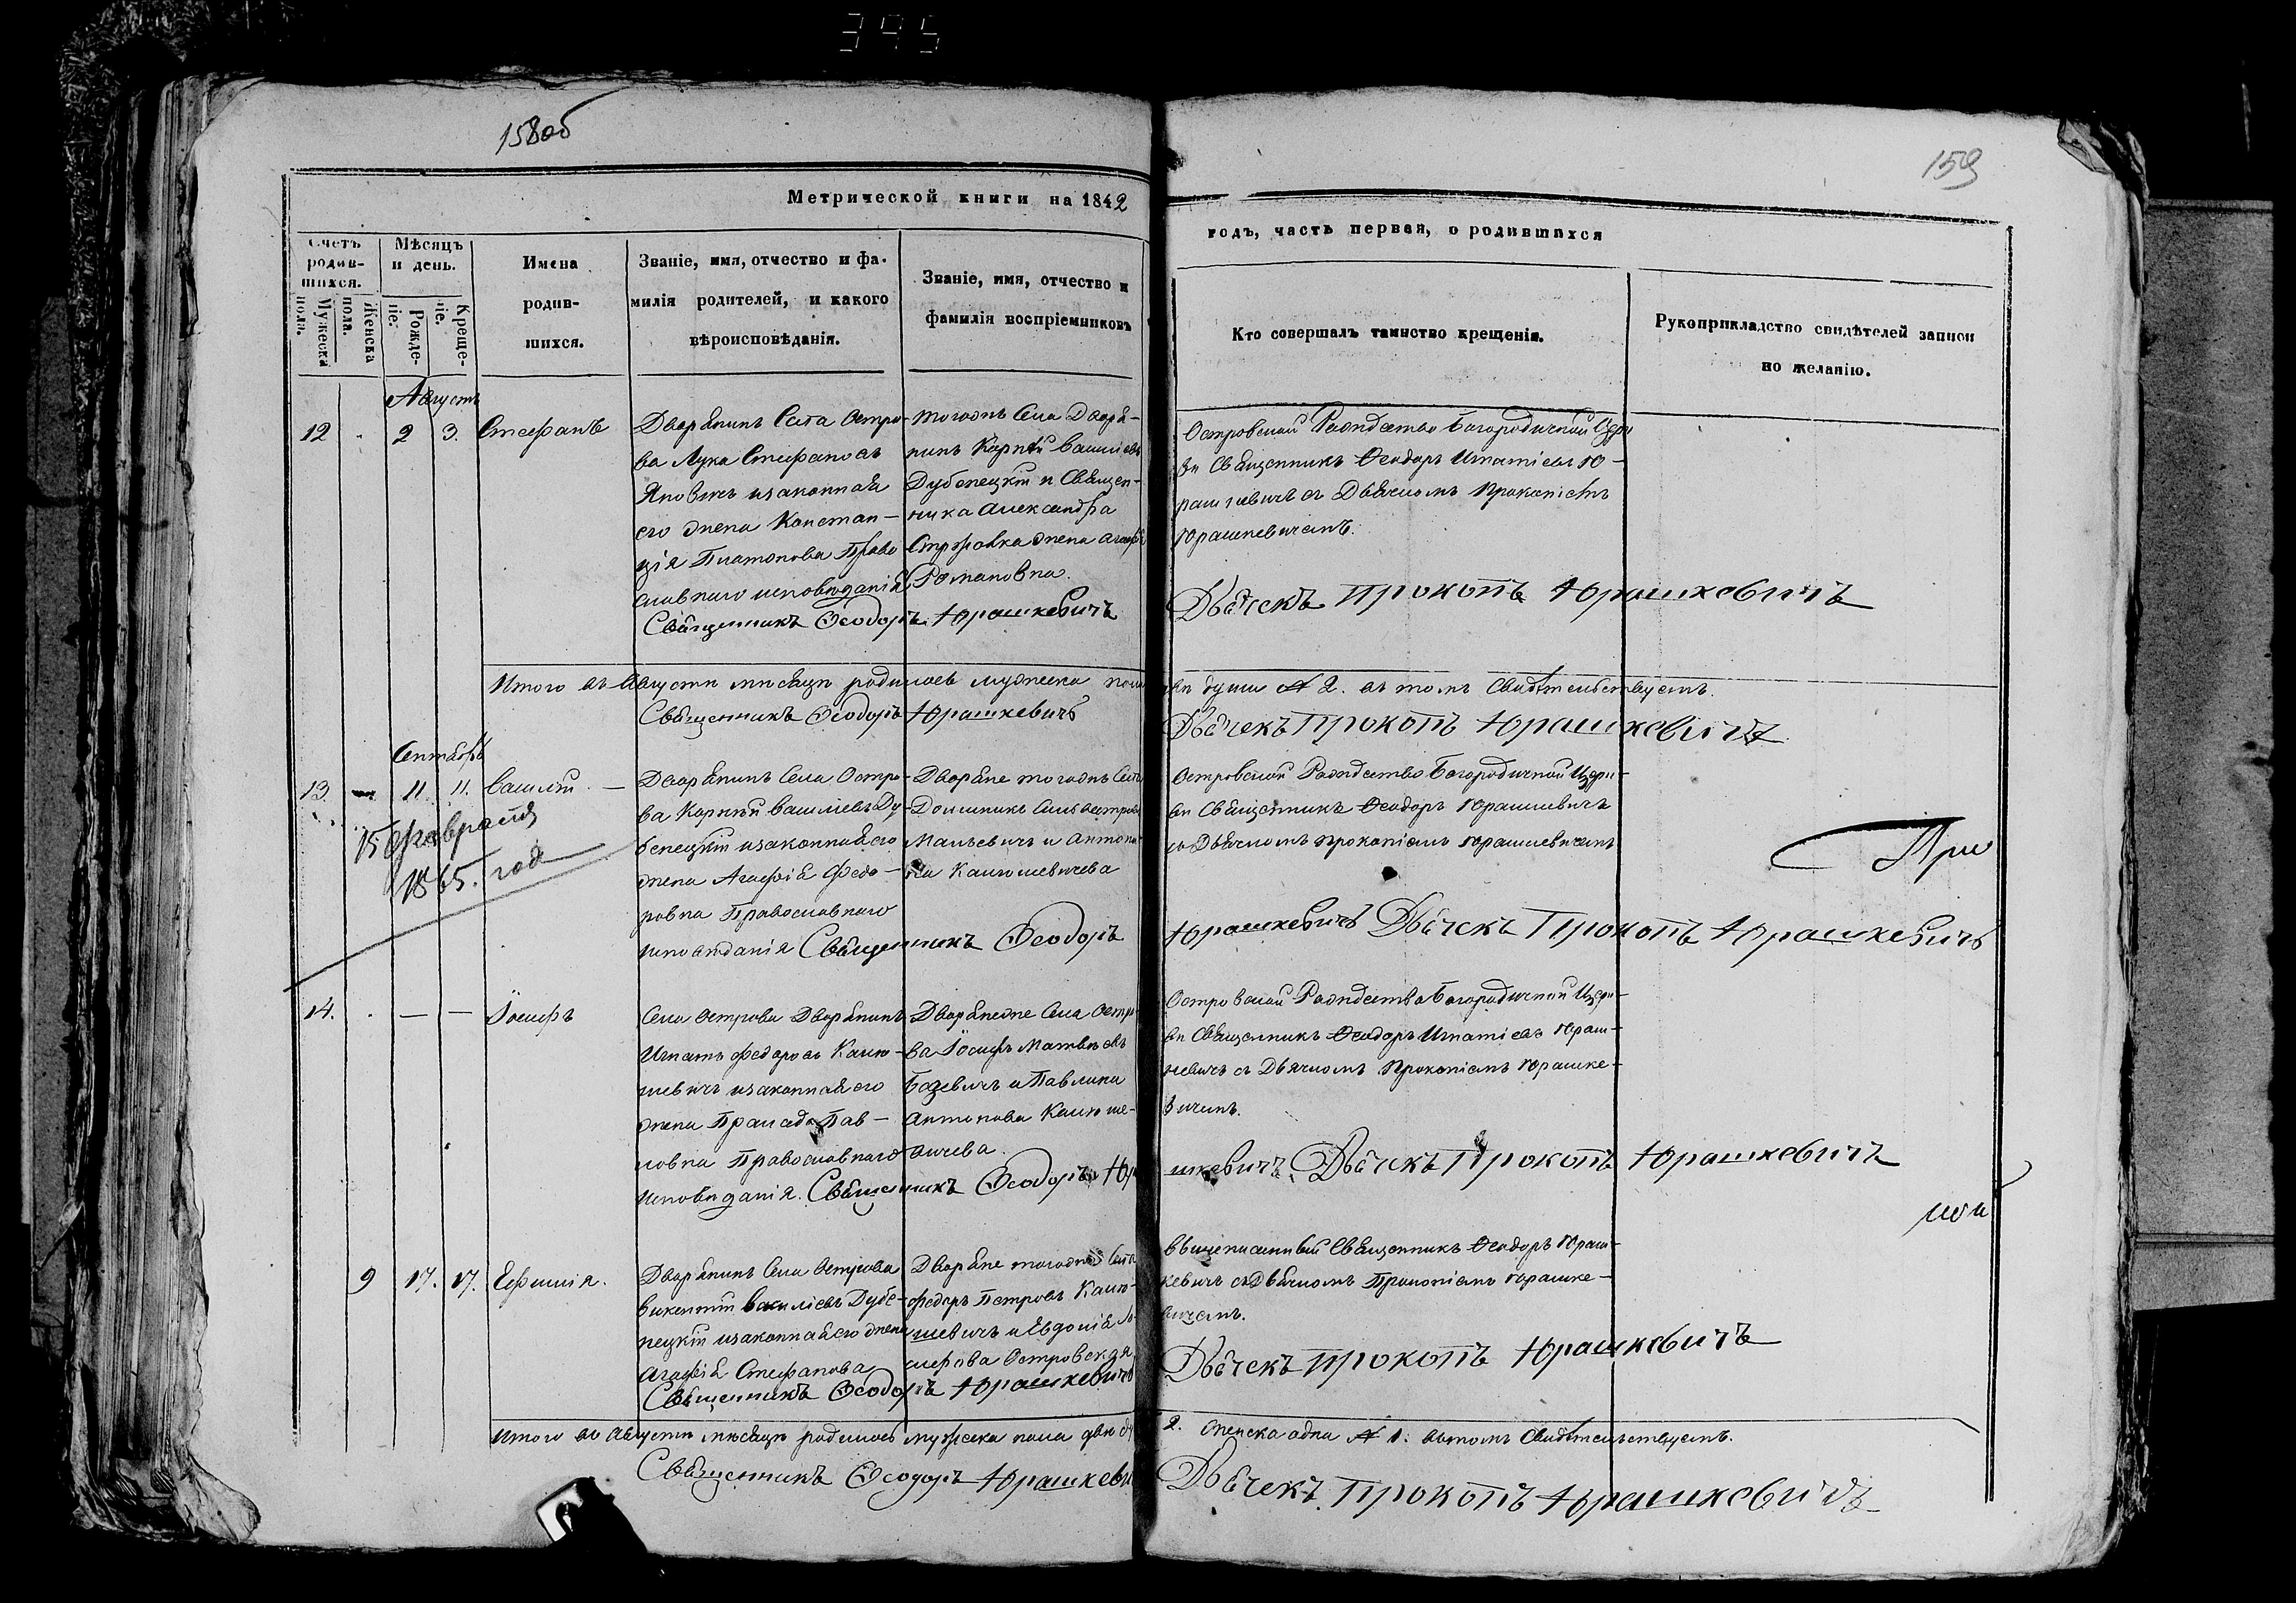 395
158об
159
Метрической книги на 1842
годъ, часть первая, о родившихся
Счетъ родив-шихся.
Мужеска пола.
Женска пола.
Мѣсяцъ и день.
Рожде-ніе.
Креще-ніе.
Имена
родив-
шихся.
Званіе, имя, отчество и фа-
милія родителей, и какого
вѣроисповѣданія.
Званіе, имя, отчество и
фамилія воспріемниковъ
Кто совершалъ таинство крещенія.
Рукоприкладство свидѣтелей записи
по желанію.
Августъ
12 2 3. Стефанъ
Дворянинъ Села Остро-
ва Лука Стефановъ
Яновичъ изаконная
его жена Констан-
ція Платонова Право
славнаго исповѣданія
Тогожъ Села Дворя-
нинъ Карпъ Василіевъ
Дубенецкій и Священ-
ника Александра
жена
Романовна.
Священникъ Ѳеодоръ Юрашкевичъ
Островской Рождество Богородичной Церк
ви Священникъ Ѳеодоръ Игнатіевъ Ю-
рашкевичъ съ Дьячкомъ Прокопіемъ
Юрашкевичемъ.
Дьячекъ Прокопъ Юрашкевичъ
Итого въ Августѣ мѣсяцѣ родилось мужеска пола
двѣ души № 2. въ томъ Свидѣтельствуемъ.
Священникъ Ѳеодоръ Юрашкевичъ
Дьячекъ Прокопъ Юрашкевичъ
Сентябрь
13. — 11. 11. Василій —
15 февраля
1865. год
Дворянинъ Села Остро-
ва Карпъ Василіевъ Ду-
бенецкій изаконная его
жена Агафія Федо-
ровна Православнаго
исповѣданія Священникъ Ѳеодоръ
Дворяне тогожъ Села
Малевичъ и Антони
на Калюшевичева
Островской Рождество Богородичной Церк-
ви Священникъ Ѳеодоръ Юрашкевичъ
съ Дьячкомъ Прокопіемъ Юрашкевичемъ
При
Юрашкевичъ Дьячекъ Прокопъ Юрашкевичъ
14. — — Іосифъ
Села Острова Дворянинъ
Игнатъ Федоровъ Калю-
шевичъ изаконная его
жена Пав-
ловна Православнаго
исповѣданія. Священникъ Ѳеодоръ Юра
Села Остро
ва Іосифъ Матвѣевъ
Базевичъ и Павлина
Антонова Калюше-
вичева.
Островской Рождества Богородичной Церк-
ви Священникъ Ѳеодоръ Игнатіевъ Юраш-
кевичъ съ Дьячкомъ Прокопіемъ Юрашке-
вичемъ.
шкевичъ. Дьячекъ Прокопъ Юрашкевичъ
9 17. 17. Ефимія.
Дворянинъ Села Острова
Викентій Василіевъ Дубе-
нецкій изаконная его жена
Агафія Стефанова
Дворяне тогожъ Села
Федоръ Петровъ Калю-
шевичъ и Евдокія
Островская
Священникъ Ѳеодоръ Юрашкевичъ
Вышеписанный Священникъ Ѳеодоръ Юраш-
кевичъ съ Дьячкомъ Прокопіемъ Юрашке-
вичемъ.
Дьячекъ Прокопъ Юрашкевичъ
Итого въ Августѣ мѣсяцѣ родилось мужеска пола двѣ
2. женска одна № 1. въ томъ Свидѣтельствуемъ.
Священникъ Ѳеодоръ Юрашкеви
Дьячекъ Прокопъ Юрашкевичъ